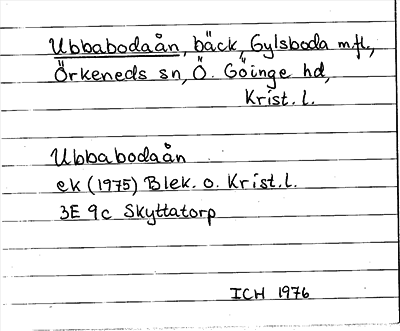 Ubbabodaån, bäck, Gylsboda m.fl.,
Örkeneds sn, Ö. Göinge hd,
Krist. l.
Ubbabodaån
ek (1975) Blek. o. Krist. l.
3E 9c Skyttatorp
ICH 1976